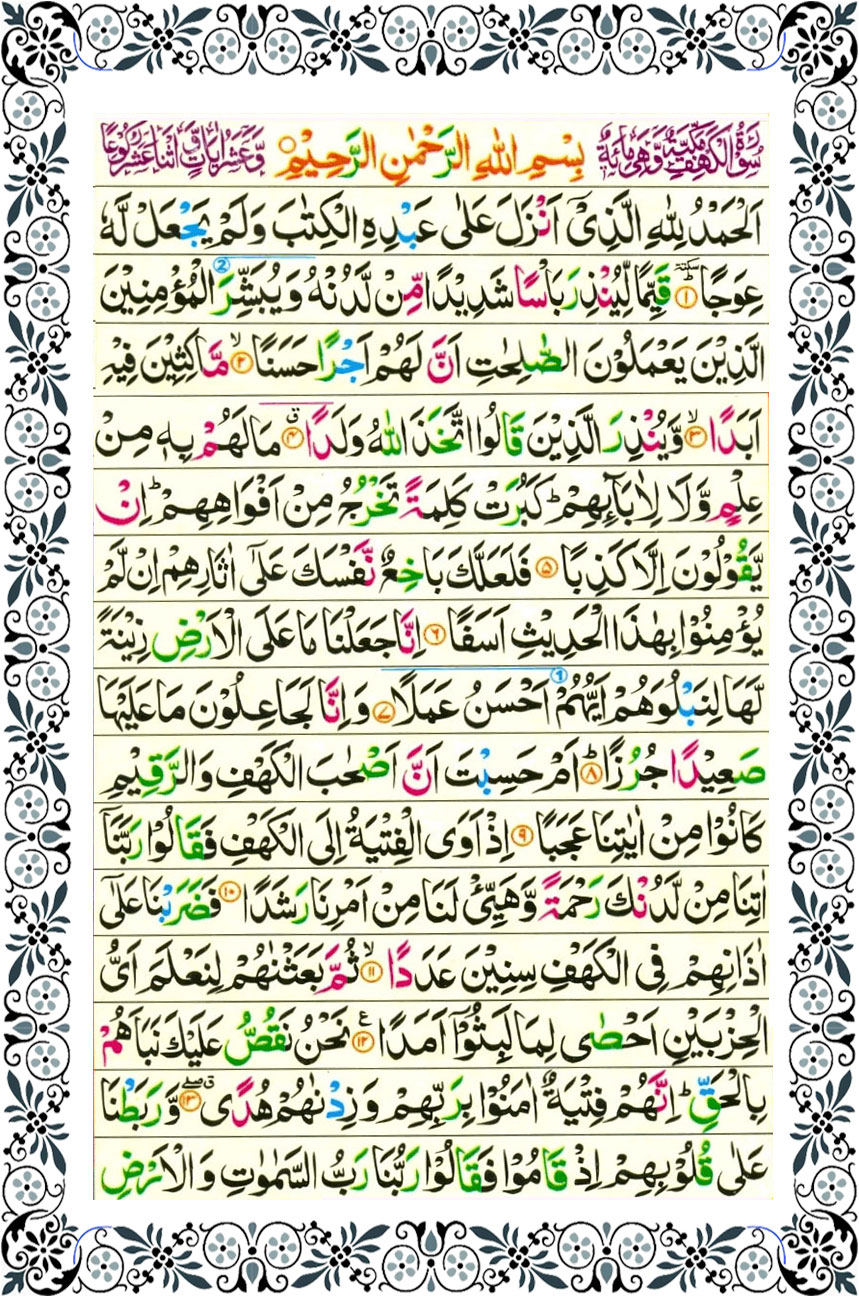 سُوْرَةُ الْكَهْفِ مَكِّيَّةٌ وَّهِيَ مِائَةٌ بِسْمِ اللّٰهِ الرَّحْمٰنِ الرَّحِيْمِ وَّعَشْرُ اٰيَاتٍ وَّاثْنَا عَشَرَ رُكُوْعًا
اَلْحَمْدُ لِلّٰهِ الَّذِىْۤ اَنْزَلَ عَلٰى عَبْدِهِ الْكِتٰبَ وَلَمْ يَجْعَلْ لَّهٗ
عِوَجًا ؕ سكتة ۱ قَيِّمًا لِّيُنْذِرَ بَاْسًا شَدِيْدًا مِّنْ لَّدُنْهُ وَيُبَشِّرَ 2 الْمُؤْمِنِيْنَ
الَّذِيْنَ يَعْمَلُوْنَ الصّٰلِحٰتِ اَنَّ لَهُمْ اَجْرًا حَسَنًا ۙ ۲ مَّاكِثِيْنَ فِيْهِ
اَبَدًا ۙ ۳ وَّيُنْذِرَ الَّذِيْنَ قَالُوا اتَّخَذَ اللّٰهُ وَلَدًا ق ۴ مَا لَهُمْ بِهٖ مِنْ
عِلْمٍ وَّلَا لِاٰبَآئِهِمْ ؕ كَبُرَتْ كَلِمَةً تَخْرُجُ مِنْ اَفْوَاهِهِمْ ؕ اِنْ
يَّقُوْلُوْنَ اِلَّا كَذِبًا ۵ فَلَعَلَّكَ بَاخِعٌ نَّفْسَكَ عَلٰٓى اٰثَارِهِمْ اِنْ لَّمْ
يُؤْمِنُوْا بِهٰذَا الْحَدِيْثِ اَسَفًا ۶ اِنَّا جَعَلْنَا مَا عَلَى الْاَرْضِ زِيْنَةً
لَّهَا لِنَبْلُوَهُمْ اَيُّهُمْ 1 اَحْسَنُ عَمَلًا ۷ وَاِنَّا لَجَاعِلُوْنَ مَا عَلَيْهَا
صَعِيْدًا جُرُزًا ؕ ۸ اَمْ حَسِبْتَ اَنَّ اَصْحٰبَ الْكَهْفِ وَالرَّقِيْمِ
كَانُوْا مِنْ اٰيٰتِنَا عَجَبًا ۹ اِذْ اَوَى الْفِتْيَةُ اِلَى الْكَهْفِ فَقَالُوْا رَبَّنَاۤ
اٰتِنَا مِنْ لَّدُنْكَ رَحْمَةً وَّهَيِّئْ لَنَا مِنْ اَمْرِنَا رَشَدًا ۱۰ فَضَرَبْنَا عَلٰٓى
اٰذَانِهِمْ فِى الْكَهْفِ سِنِيْنَ عَدَدًا ۙ ۱۱ ثُمَّ بَعَثْنٰهُمْ لِنَعْلَمَ اَىُّ
الْحِزْبَيْنِ اَحْصٰى لِمَا لَبِثُوْۤا اَمَدًا ع ۱۲ نَحْنُ نَقُصُّ عَلَيْكَ نَبَاَهُمْ
بِالْحَقِّ ؕ اِنَّهُمْ فِتْيَةٌ اٰمَنُوْا بِرَبِّهِمْ وَزِدْنٰهُمْ هُدًى ق صلے ۱۳ وَّرَبَطْنَا
عَلٰى قُلُوْبِهِمْ اِذْ قَامُوْا فَقَالُوْا رَبُّنَا رَبُّ السَّمٰوٰتِ وَالْاَرْضِ